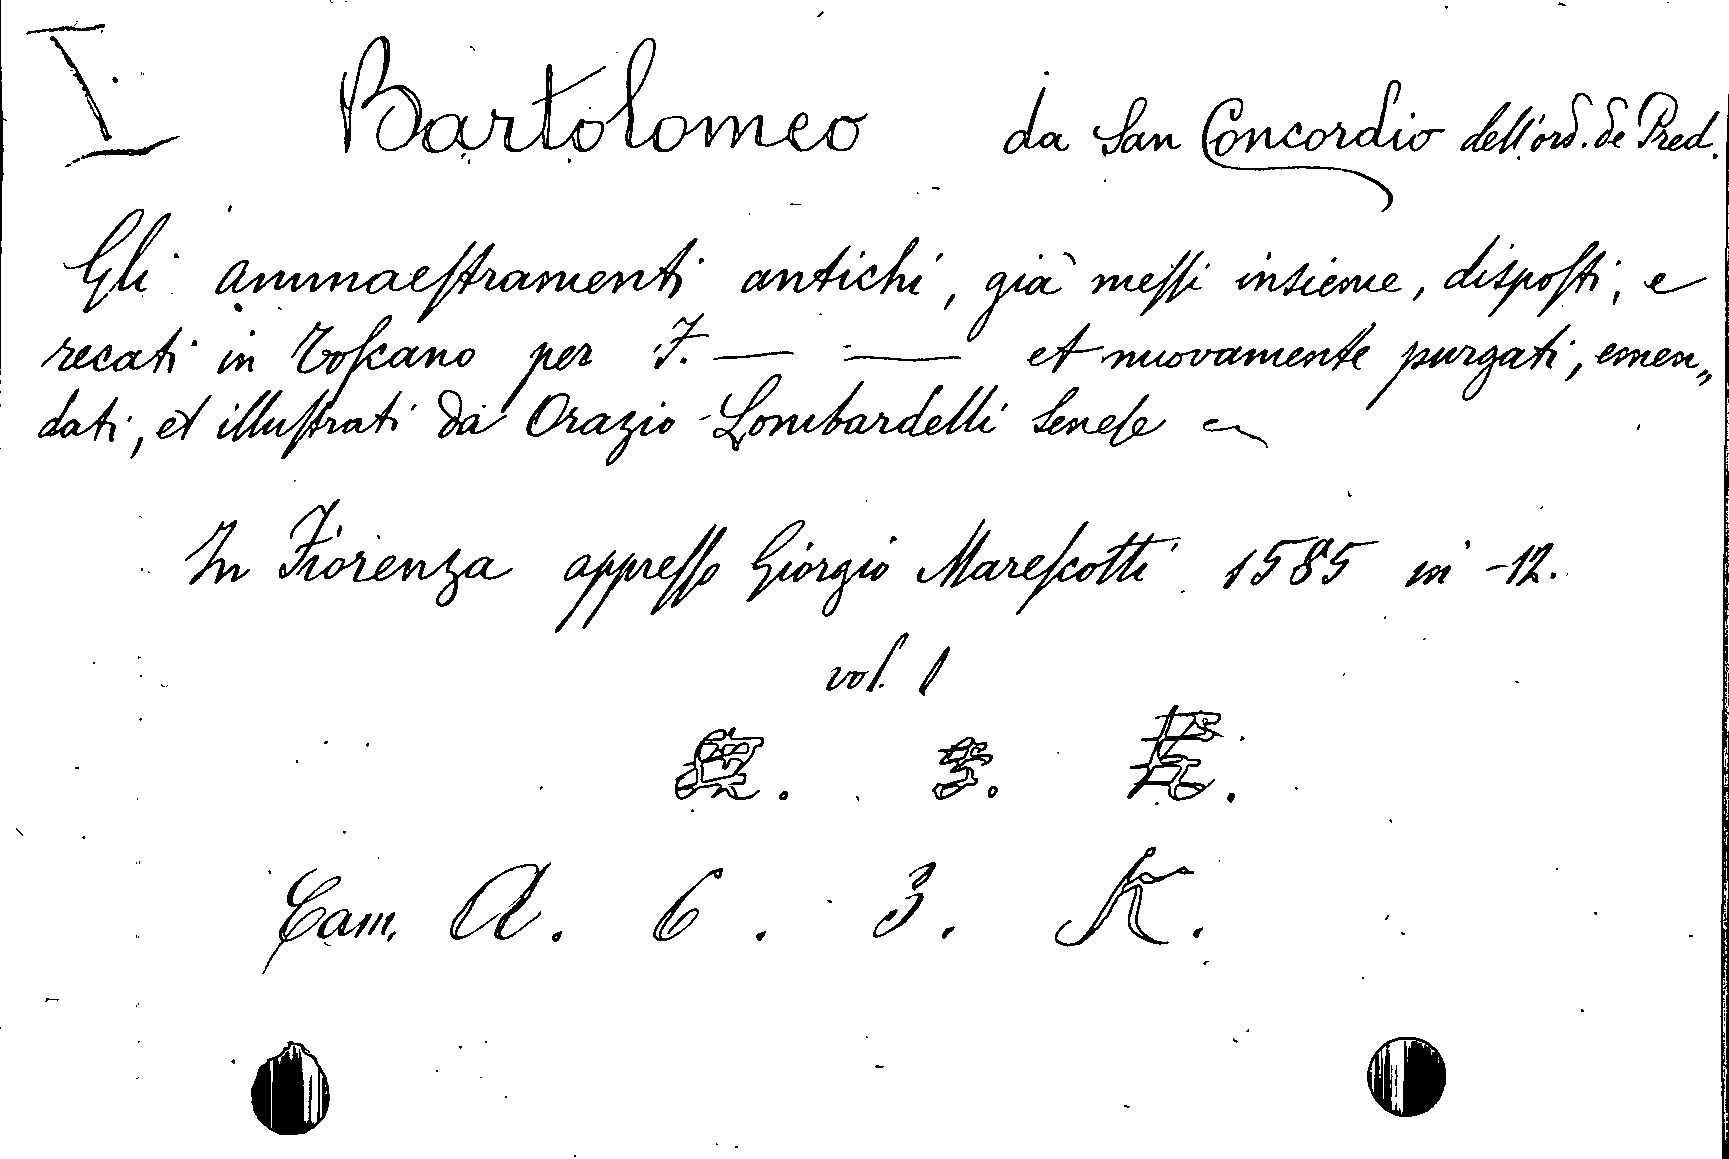 I Bartolomeo da San Concordio dell'ord. de Pred.
Gli ammaeſtramenti antichi, già meſſi insieme, dispoſti, e
recati in Toſcano per F. — — et nuovamente purgati, emen„
dati, et illuſtrati da Orazio Lombardelli Seneſe
In Fiorenza appreſſo Giorgio Mareſcotti 1585 in -12.
vol. 1
Cam. A. 6. 3. K.